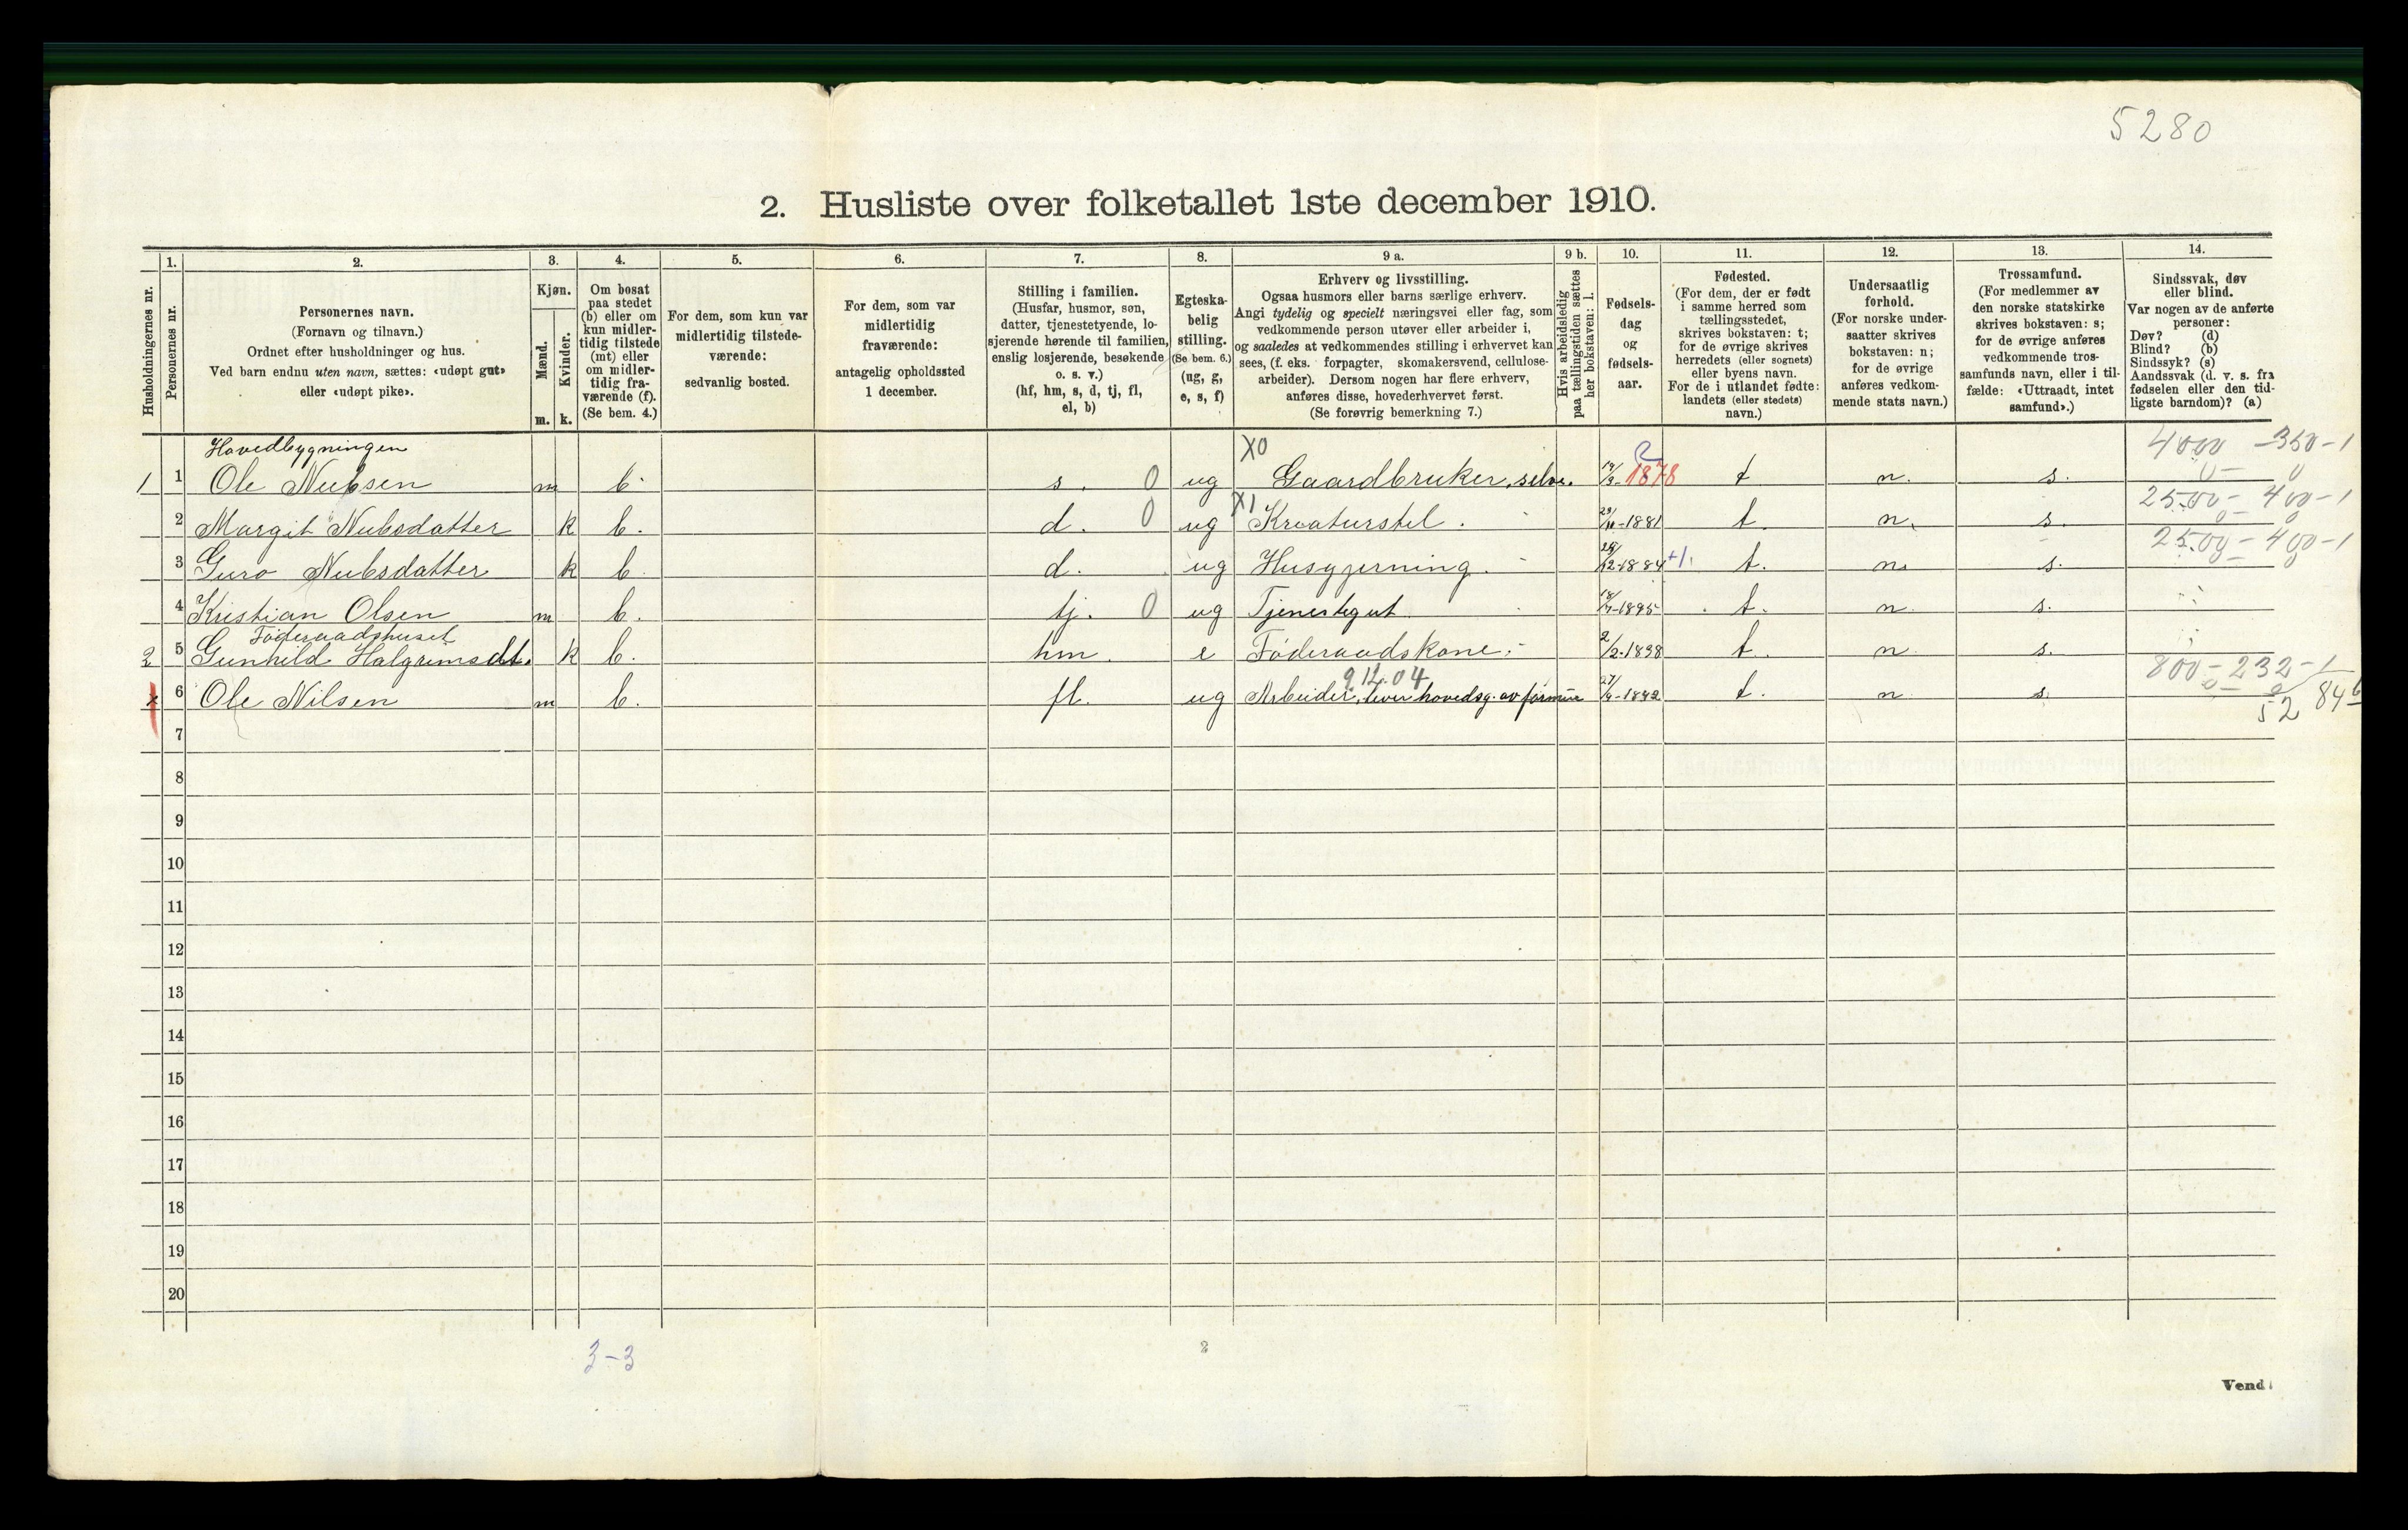 5280
2. Husliste over folketallet 1ste december 1910.
Husholdningernes nr.
1.
Personernes nr.
2.
Personernes navn.
(Fornavn og tilnavn.)
Ordnet efter husholdninger og hus.
Ved barn endnu uten navn, sættes: «udøpt gut»
eller «udøpt pike».
3.
Kjøn.
Mænd.
Kvinder.
m. k.
4.
Om bosat
paa stedet
(b) eller om
kun midler-
tidig tilstede
(mt) eller
om midler-
tidig fra-
værende (f).
(Se bem. 4.)
5.
For dem, som kun var
midlertidig tilstede-
værende:
sedvanlig bosted.
6.
For dem, som var
midlertidig
fraværende:
antagelig opholdssted
1 december.
7.
Stilling i familien.
(Husfar, husmor, søn,
datter, tjenestetyende, lo-
sjerende hørende til familien,
enslig losjerende, besøkende
o. s. v.)
(hf, hm, s, d, tj, fl,
el, b)
8.
Egteska-
belig
stilling.
(Se bem. 6.)
(ug, g,
e, s, f)
9 a.
Erhverv og livsstilling.
Ogsaa husmors eller barns særlige erhverv.
Angi tydelig og specielt næringsvei eller fag, som
vedkommende person utøver eller arbeider i,
og saaledes at vedkommendes stilling i erhvervet kan
sees, (f. eks. forpagter, skomakersvend, cellulose-
arbeider). Dersom nogen har flere erhverv,
anføres disse, hovederhvervet først.
(Se forøvrig bemerkning 7.)
9 b.
Hvis arbeidsledig
paa tællingstiden sættes
her bokstaven: l.
10.
Fødsels-
dag
og
fødsels-
aar.
11.
Fødested.
(For dem, der er født
i samme herred som
tællingsstedet,
skrives bokstaven: t;
for de øvrige skrives
herredets (eller sognets)
eller byens navn.
For de i utlandet fødte:
landets (eller stedets)
navn.)
12.
Undersaatlig
forhold.
(For norske under-
saatter skrives
bokstaven: n;
for de øvrige
anføres vedkom-
mende stats navn.)
13.
Trossamfund.
(For medlemmer av
den norske statskirke
skrives bokstaven: s;
for de øvrige anføres
vedkommende tros-
samfunds navn, eller i til-
fælde: «Uttraadt, intet
samfund».)
14.
Sindssvak, døv
eller blind.
Var nogen av de anførte
personer:
Døv? (d)
Blind? (b)
Sindssyk? (s)
Aandssvak (d. v. s. fra
fødselen eller den tid-
ligste barndom)? (a)
Hovedbygningen X0 4000 - 350 - 1
1 1 Ole Nubsen m b. s. 0 ug Gaardbruker, selve. 1878 t n. s.
X1 2500 - 400 - 1
2 Margit Nubsdatter k b. d. 0 ug Kreaturstel. 1881 t. n. s.
2500 - 400 - 1
3 Guro Nubsdatter k b. d. ug Husgjerning. 12-1884 +1. t. n. s.
4 Kristian Olsen m b. tj. 0 ug Tjenestegut 1895 t. n. s.
Föderaadshuset
2 5 Gunhild Halgrimsdt. k b. hm. e Föderaadskone. 2/2-1838 t. n. s.
912.04 800 - 232 - 1
x 6 Ole Nilsen m b. fl. ug Arbeider, lever hovedsg. av formue t. n. s.
52 84
7
8
9
10
11
12
13
14
15
16
17
18
19
20
3-3
2
Vend!